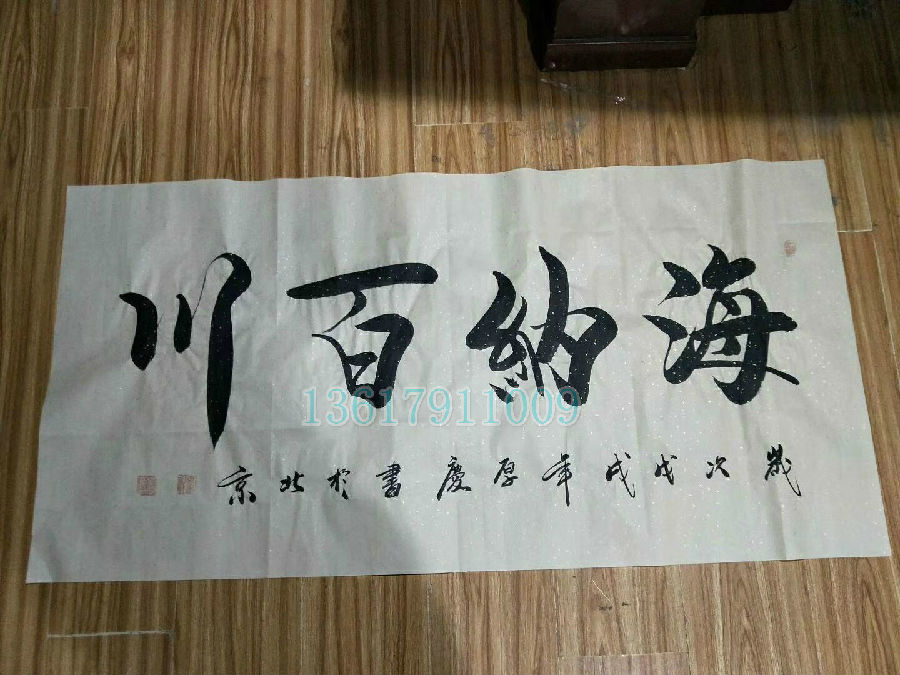 海納百川
歲次戊戌年厚慶書於北京
13617911009